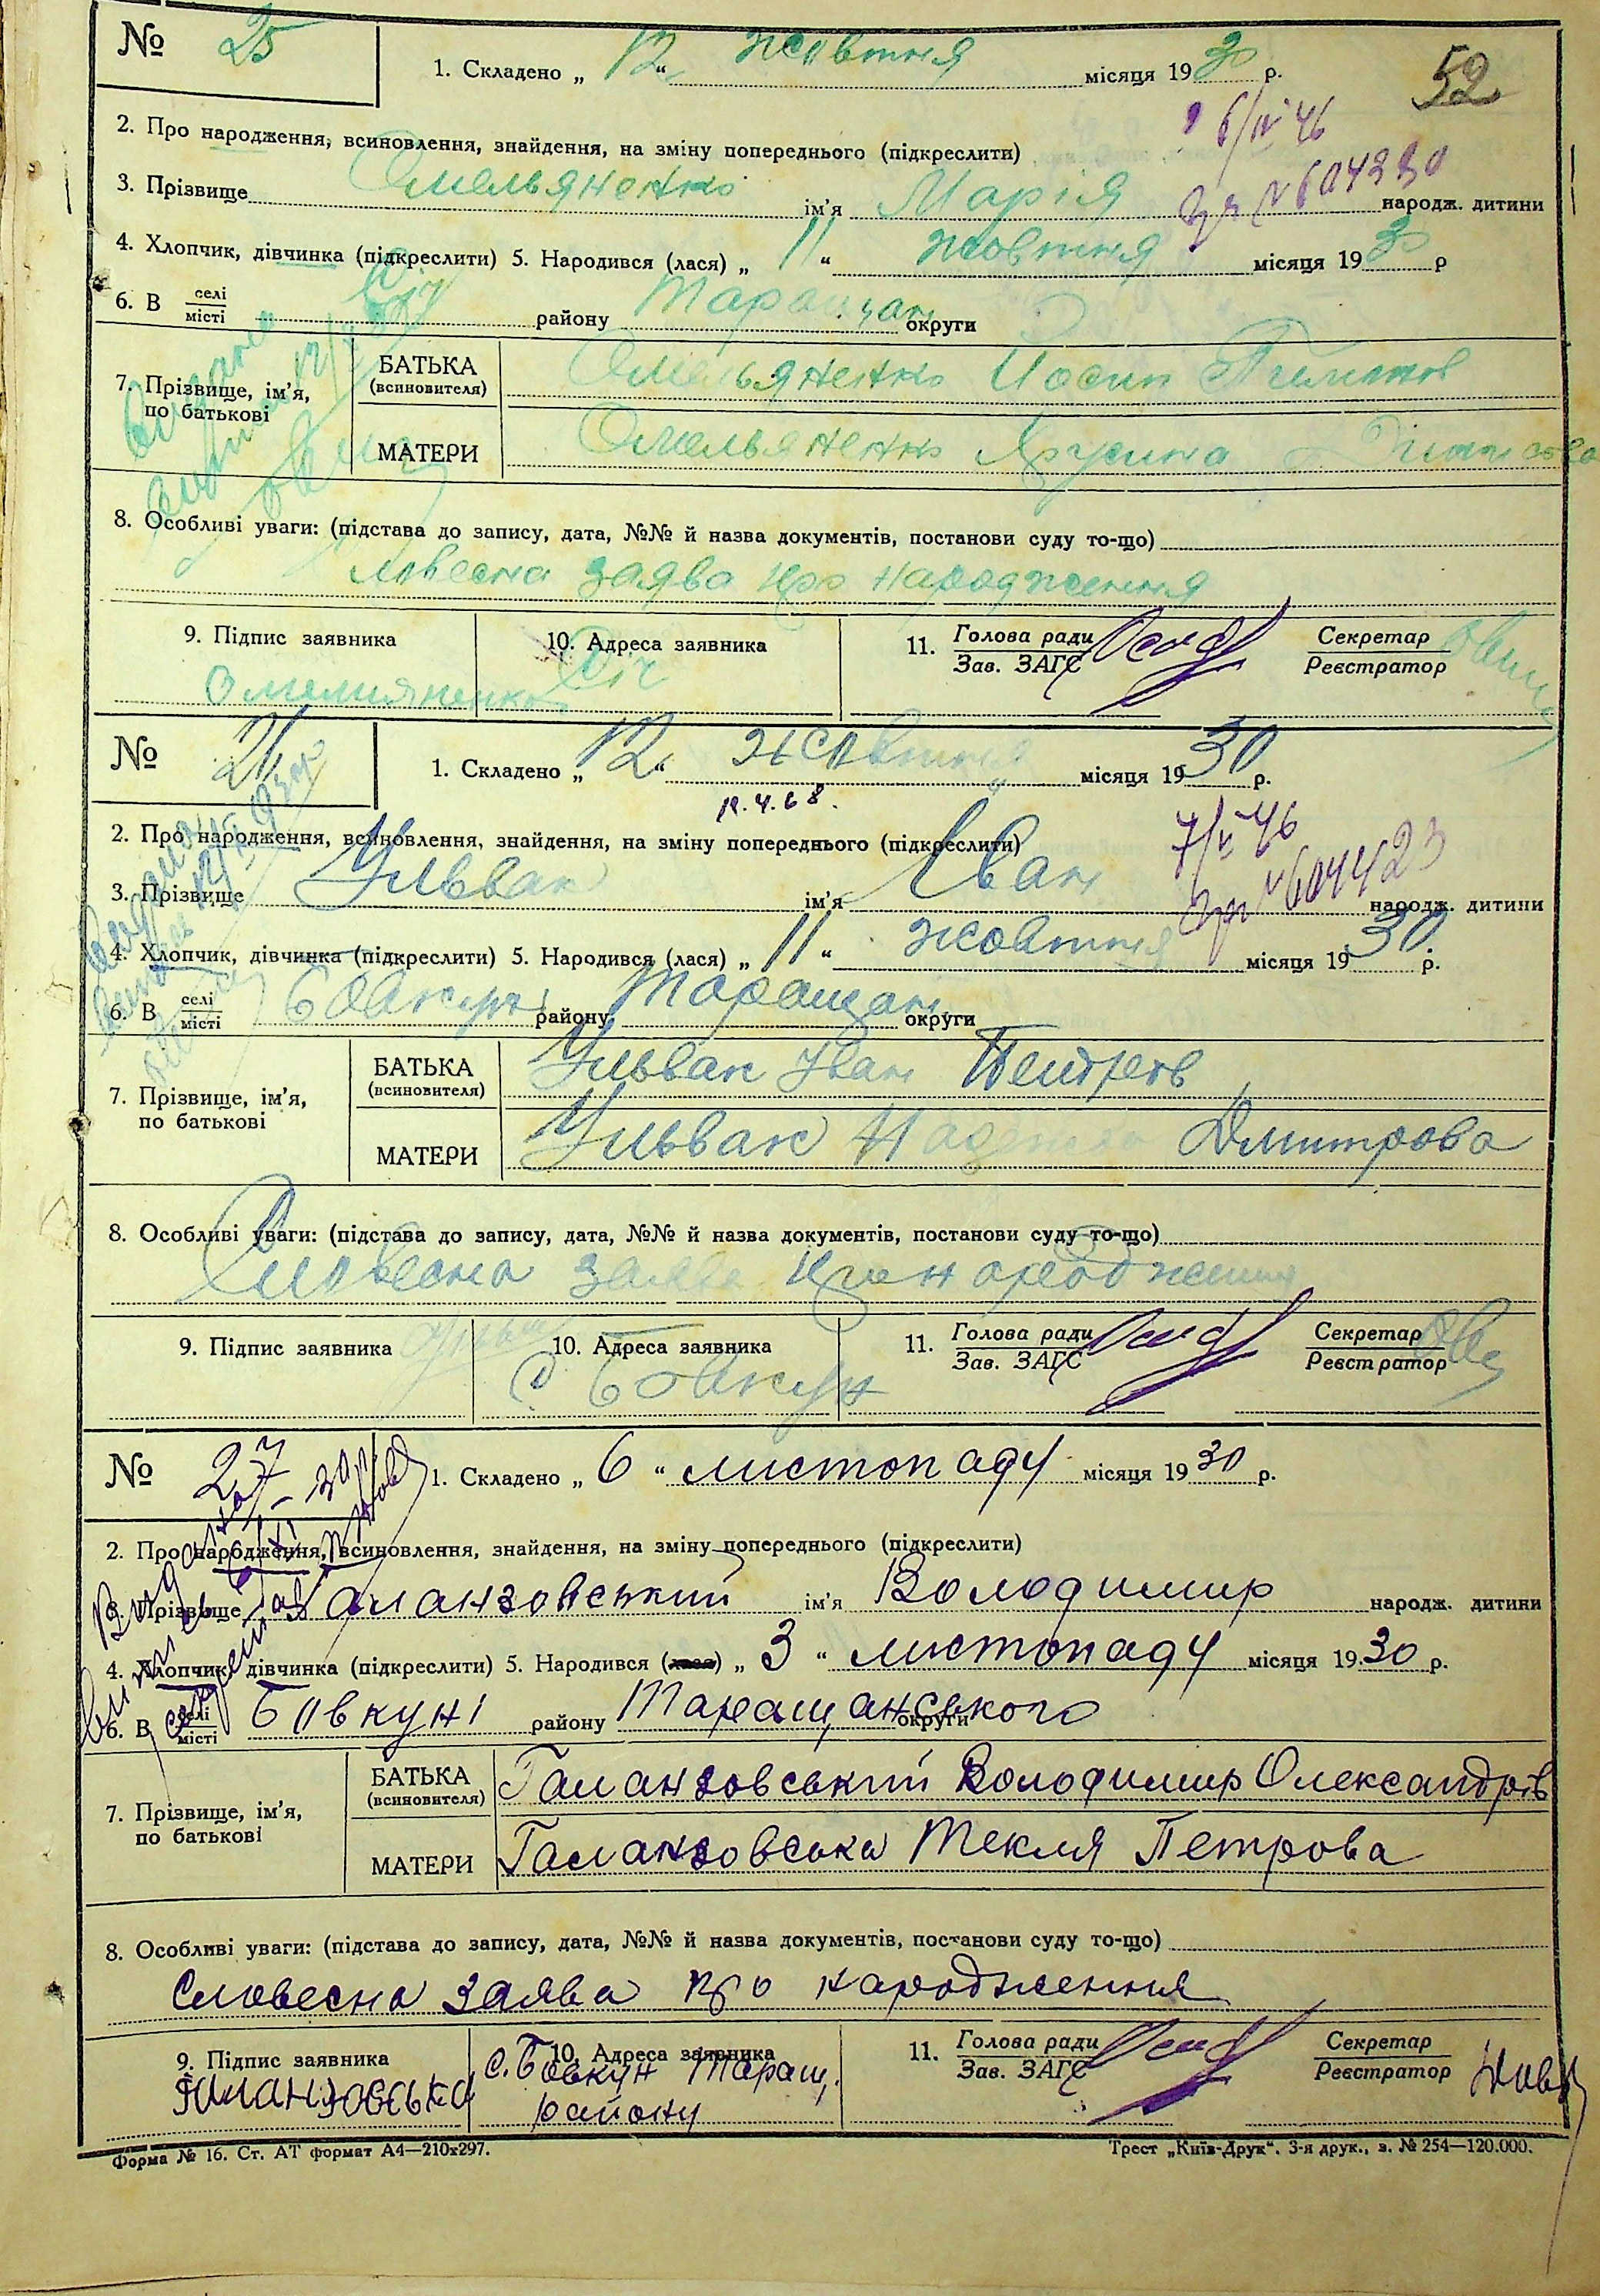 № 25
1. Складено „ 12 “ жовтня місяця 1930 р.
52
2. Про народження, всиновлення, знайдення, на зміну попереднього (підкреслити)
6/IV 46
3. Прізвище Омельяненко ім’я Марія народж. дитини
4. Хлопчик, дівчинка (підкреслити) 5. Народився (лася) „ 11 “ жовтня місяця 1930 р
6. В селі/місті Січ району Таращан округи
7. Прізвище, ім’я, по батькові
БАТЬКА (всиновителя) Омельяненко Йосип
МАТЕРИ Омельяненко
8. Особливі уваги: (підстава до запису, дата, №№ й назва документів, постанови суду то-що)
словесна заява про народження
9. Підпис заявника 10. Адреса заявника 11. Голова ради/Зав. ЗАГС Секретар/Реєстратор
Омелияненко Січ
№ 26
1. Складено „ 12 “ жовтня місяця 1930 р.
12.4.68.
2. Про народження, всиновлення, знайдення, на зміну попереднього (підкреслити)
7/V 46
3. Прізвище Ульван ім’я Іван народж. дитини
№ 604423
4. Хлопчик, дівчинка (підкреслити) 5. Народився (лася) „ 11 “ жовтня місяця 1930 р.
6. В селі/місті Бовкуні району Таращан округи
7. Прізвище, ім’я, по батькові
БАТЬКА (всиновителя) Ульван Іван Петров
МАТЕРИ Ульван Надежда Дмитрова
8. Особливі уваги: (підстава до запису, дата, №№ й назва документів, постанови суду то-що)
Словесна заява про народження
9. Підпис заявника 10. Адреса заявника 11. Голова ради/Зав. ЗАГС Секретар/Реєстратор
с Бовкун
№ 27
1. Складено „ 6 “ листопаду місяця 1930 р.
2. Про народження, всиновлення, знайдення, на зміну попереднього (підкреслити)
3. Прізвище Галанзовський ім’я Володимир народж. дитини
4. Хлопчик, дівчинка (підкреслити) 5. Народився (лася) „ 3 “ листопаду місяця 1930 р.
6. В селі/місті Бовкуні району Таращанського округи
7. Прізвище, ім’я, по батькові
БАТЬКА (всиновителя) Галанзовський Володимир Олександрів
МАТЕРИ Галанзовська Текля Петрова
8. Особливі уваги: (підстава до запису, дата, №№ й назва документів, постанови суду то-що)
Словесна заява про народження
9. Підпис заявника 10. Адреса заявника 11. Голова ради/Зав. ЗАГС Секретар/Реєстратор
с. Бовкун Таращ.
району
Форма № 16. Ст. АТ формат А4—210x297. Трест „Київ-Друк“. 3-я друк., з. № 254—120.000.